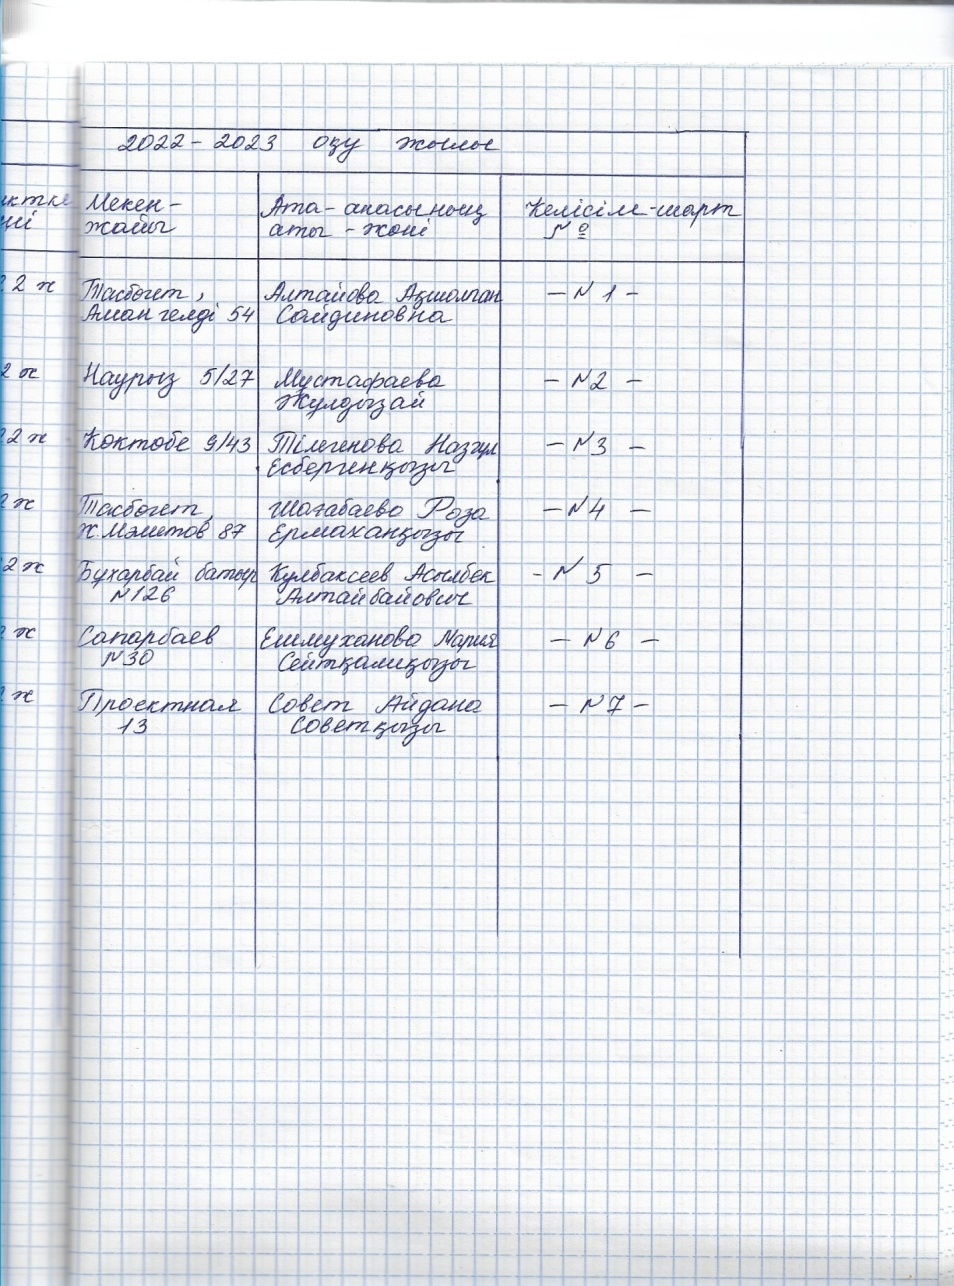 2022-2023 оқу жылы
Мекен-
жайы
Ата-анасының
аты-жөні
Келісім-шарт
№
2 ж
Тасбөгет,
Амангелді 54
Алтаийова Ақмолған
Саидиновна
- N 1 -
2 ж
Наурыз 5/27
Мустафаева
Жулдызай
- N2 -
2 ж
Көктөбе 9/43
Тілегенова Назгүл
Есбергенқызы
- N3 -
ж
Тасбөгет,
Ж.Мәметов 87
Шағабаева Роза
Ермаханқызы
- N4 -
2 ж
Бұхарбай батыр
N126
Кулбаксеев Асылбек
Алтайбайович
- N 5 -
ж
Сапарбаев
N30
Ешмуханова Мария
Сейтқалиқызы
- N6 -
ж
Проектная
13
Совет Айдана
Советқызы
- N7 -